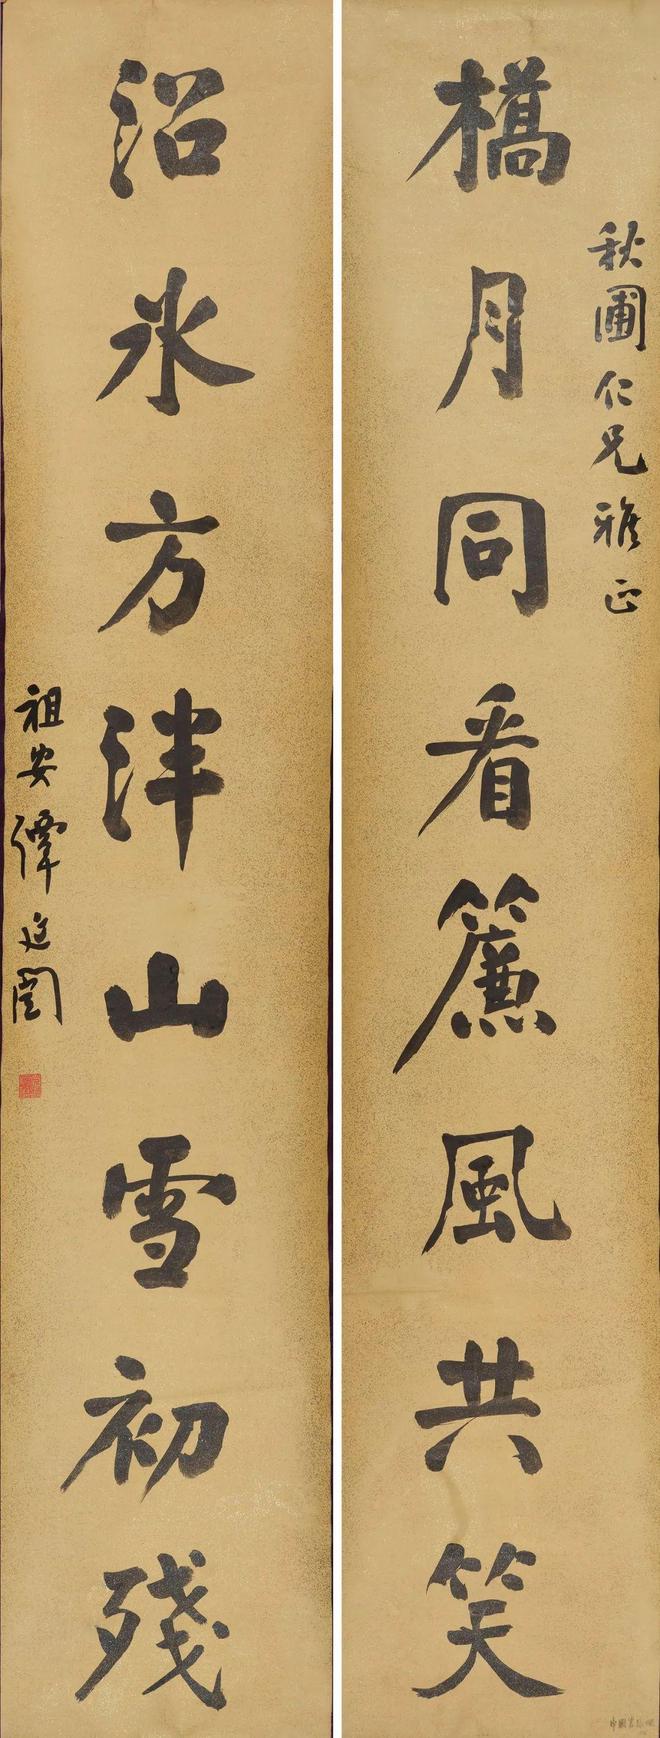 橋月同看簾風共笑
秋圃仁兄雅正
沼冰方泮山雪初殘
祖安譚延闓